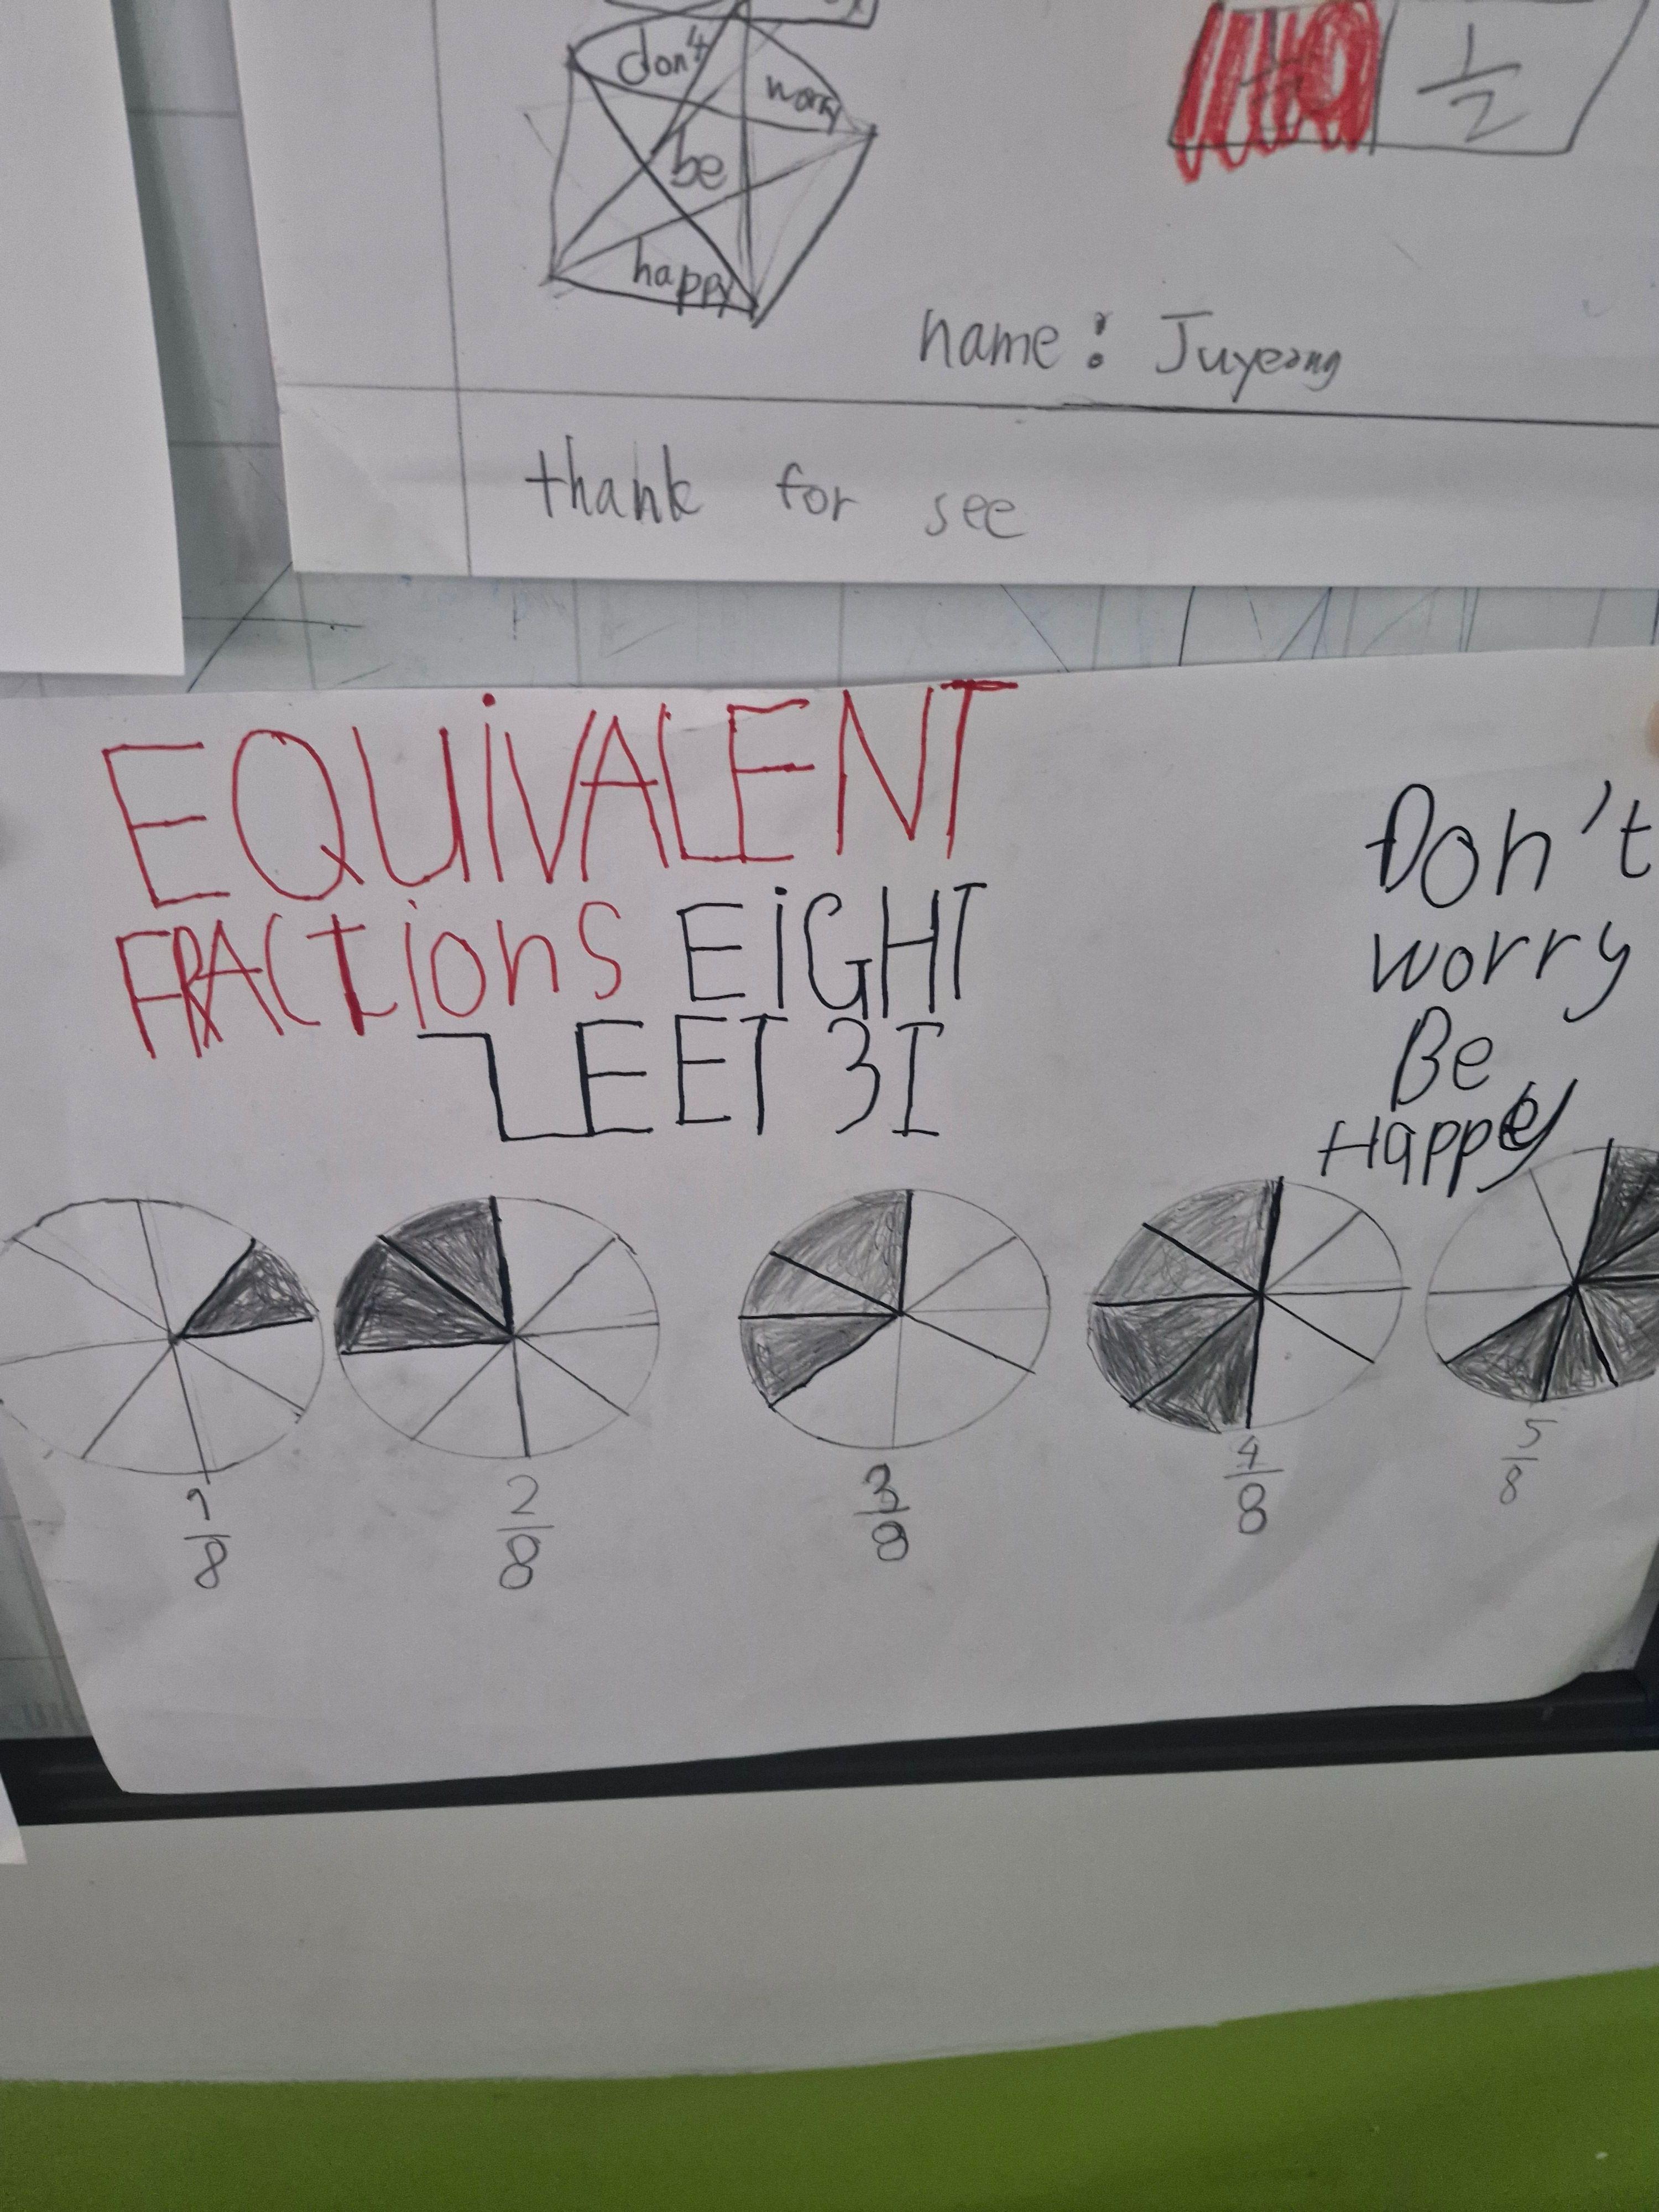 don't
worry
be
happy
1/2
name: Juyeong
thank for see
EQUiVALENT
FRACTions EiGHT
ZEET 3I
Don't
worry
Be
Happy
1/8
2/8
3/8
4/8
5/8